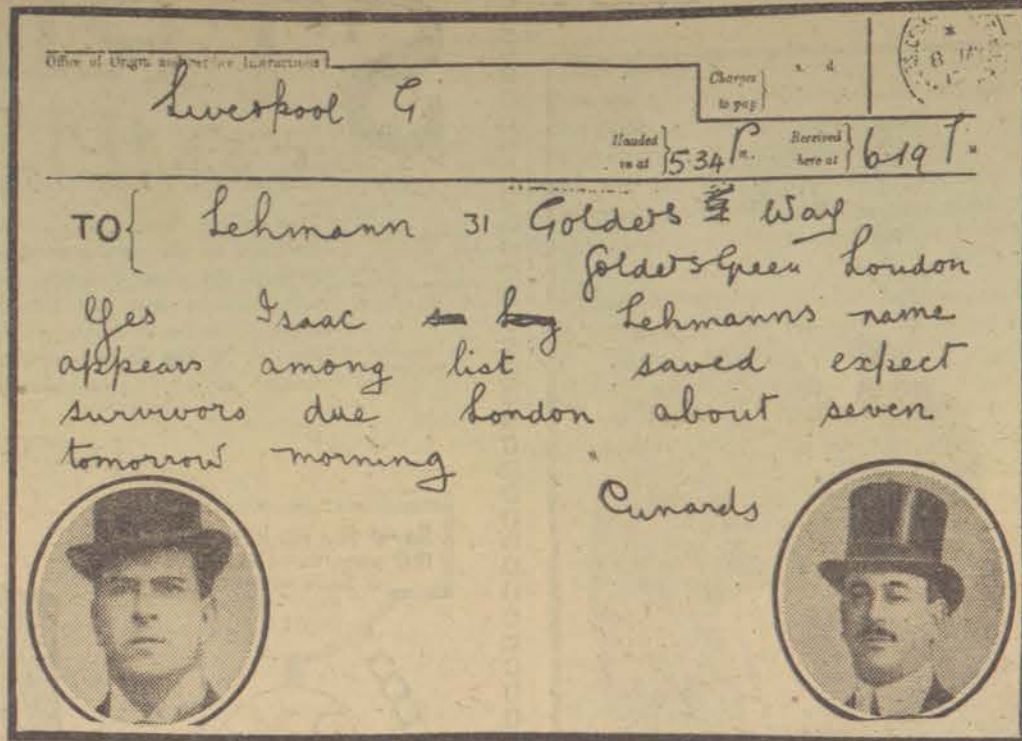 Office of Origin and Service Instructions
Liverpool G
Charges to pay } s. d.
Handed in at } 5.34 P m. Received here at } 6.19 P m
TO { Lehmann 31 Golders Way
Golders Green London
Yes Isaac Lehmanns name
appears among list saved expect
survivors due London about seven
tomorrow morning
Cunards